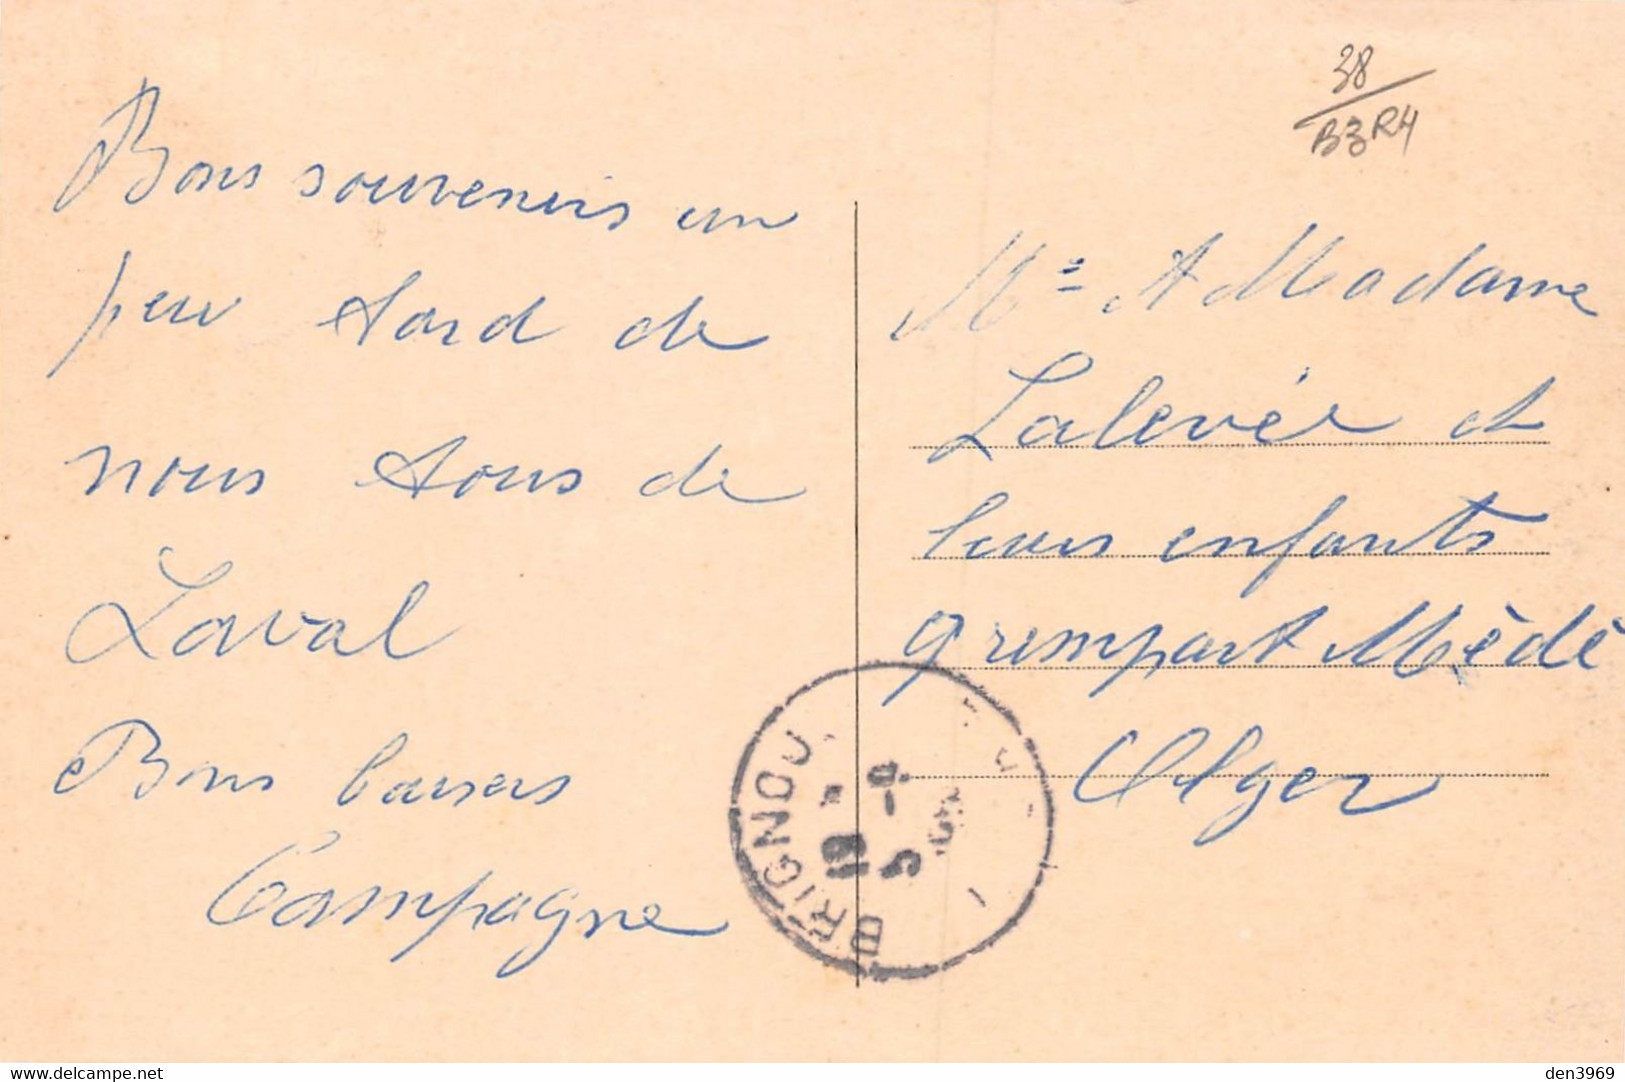 38
B3R4
Bons souvenirs un
peu tard de
nous tous de
Laval
Bons baisers
Campagne
Mr & Madame
Lalevée et
leurs enfants
9 rempart Médé
Alger
BRIGNOU
delcampe.net
den3969